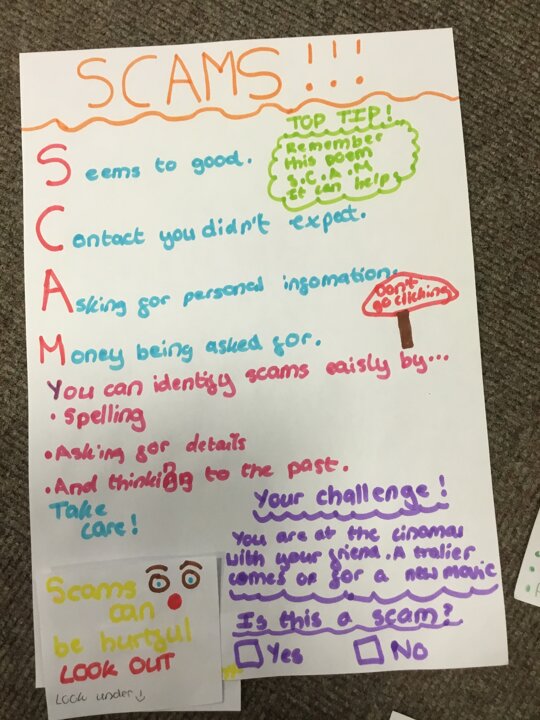 SCAMS!!!
TOP TIP!
Remember
this poem
S.C.A.M
it can help
Seems to good.
Contact you didn't expect.
Asking for personal infomation.
Don't
go clicking
Money being asked for.
You can identify scams eaisly by...
• Spelling
• Asking for details
• And thinking to the past.
Take
care!
Your challenge!
You are at the cinoma
with your friend. A tralier
comes on for a new movie
Is this a scam?
Yes
No
Scams
can
be hurtful
LOOK OUT
Look under